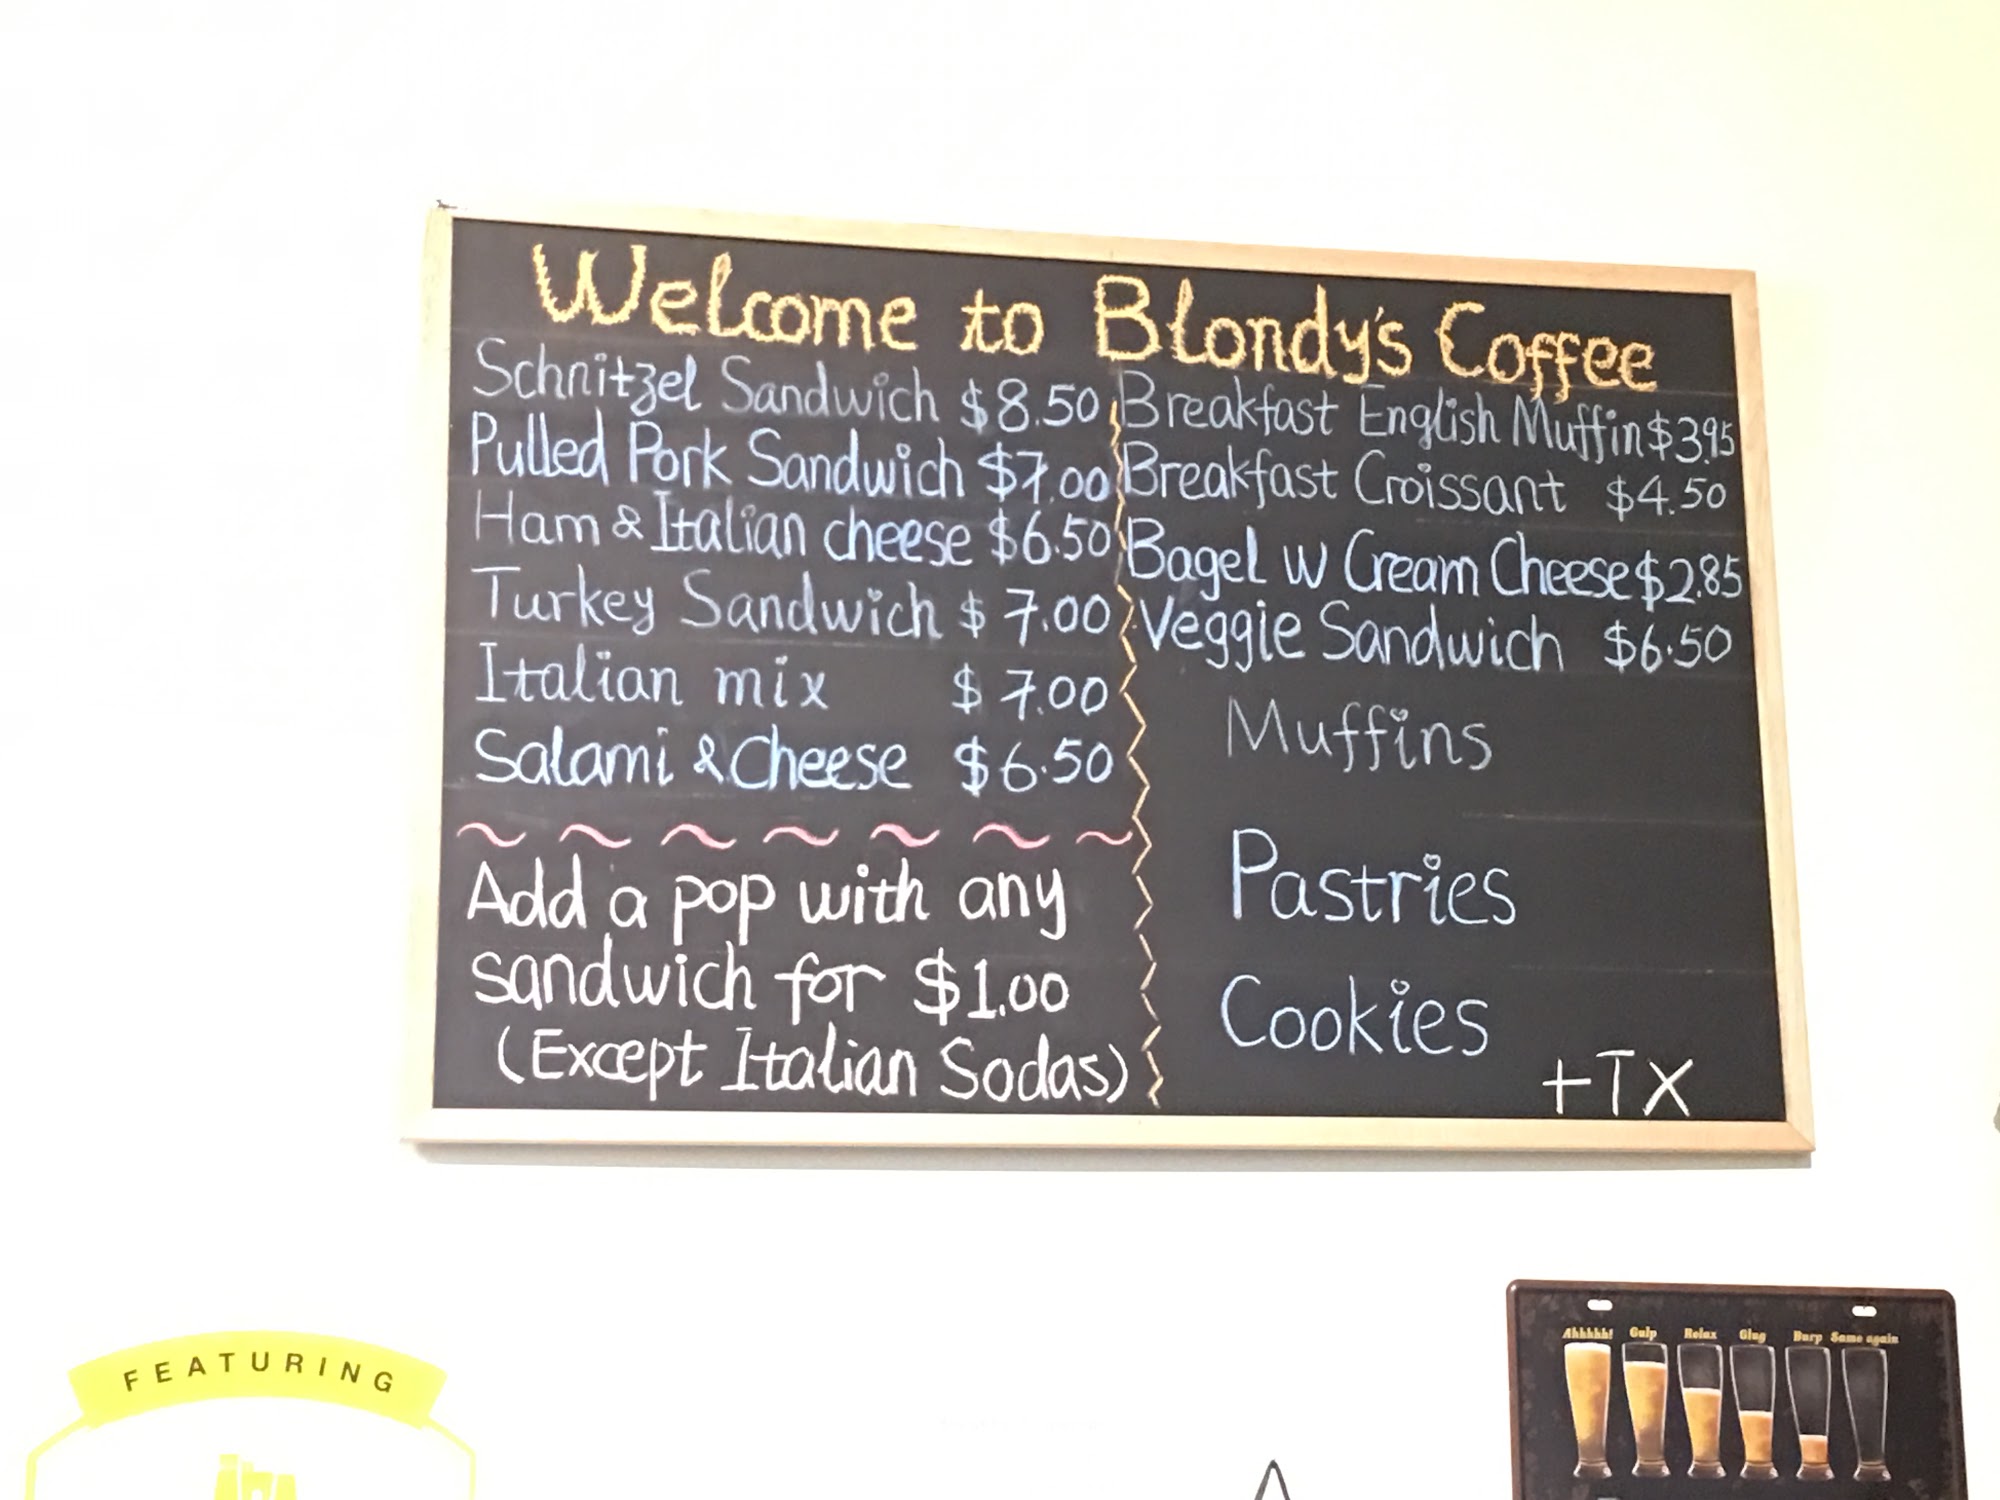 Welcome to Blondy's Coffee
Schnitzel Sandwich $8.50
Pulled Pork Sandwich $7.00
Ham & Italian cheese $6.50
Turkey Sandwich $7.00
Italian mix $7.00
Salami & Cheese $6.50
Add a pop with any
sandwich for $1.00
(Except Italian Sodas)
Breakfast English Muffin $3.95
Breakfast Croissant $4.50
Bagel w Cream Cheese $2.85
Veggie Sandwich $6.50
Muffins
Pastries
Cookies
+TX
FEATURING
Ahhhhh! Gulp Relax Glug Burp Same again